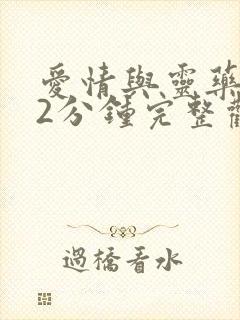 愛情與靈藥
2分鍾完整
過橋看水